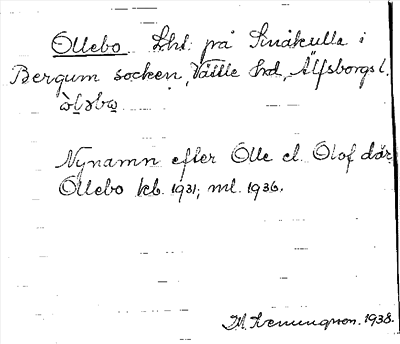 Ollebo Lht. på Småkulla i
Bergum socken, Vättle hd, Älfsborgs l.
Nynamn efter Olle el. Olof där.
Ollebo kb. 1931; ml. 1936.
1938.